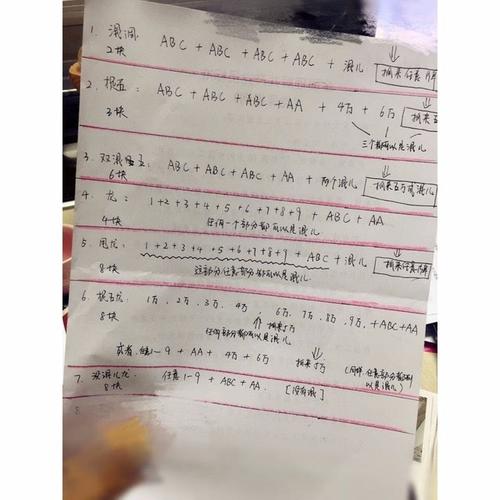 1. 混洞 ABC + ABC + ABC + ABC + 混儿 摘来任意牌
2块
2. 捉五: ABC + ABC + ABC + AA + 4万 + 6万 摘来五
3块
三个都可以是混儿
3. 双混五: ABC + ABC + ABC + AA + 两个混儿 摘来五万或混儿
6块
4. 龙: 1+2+3+4+5+6+7+8+9 + ABC + AA
4块
任何一个部分都可以是混儿
5. 龙: 1+2+3+4+5+6+7+8+9 + ABC + 混儿 摘来任意牌
8块
这部分任意部分都可以是混儿
6. 捉五龙: 1万, 2万, 3万, 4万 6万, 7万, 8万, 9万, + ABC + AA
8块
摘来5万
任何部分都可以是混儿
或者, 1~9 + AA + 4万 + 6万 摘来5万 (同样任意部分都可以是混儿)
7. 没混儿龙: 任意1-9 + ABC + AA. [没有混]
8块
8.